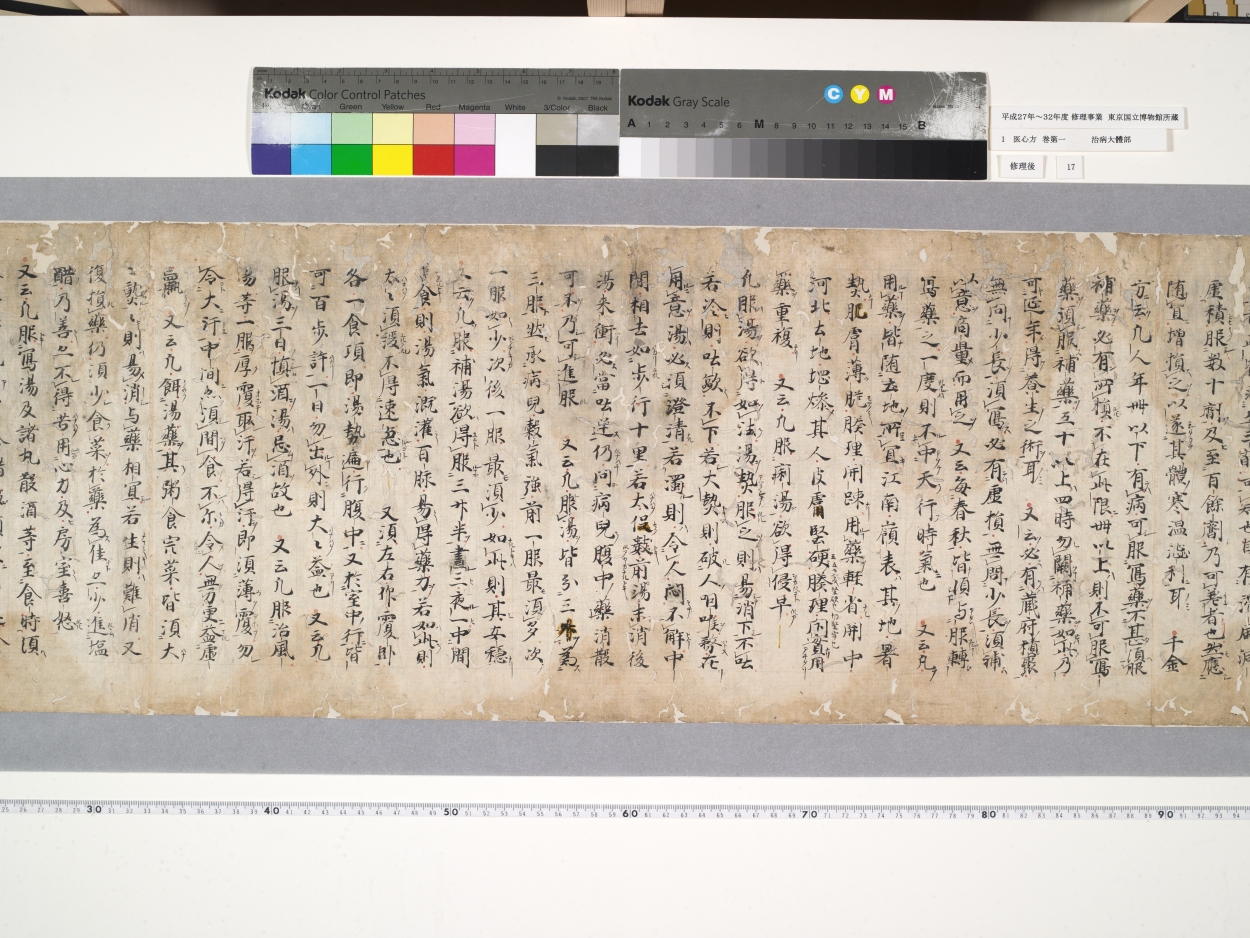 Kodak Color Control Patches
Green Yellow Red Magenta White 3/Color Black
Kodak Gray Scale
C Y M
A 1 2 3 4 5 6 M 8 9 10 11 12 13 14 15 B
平成27年〜32年度 修理事業 東京国立博物館所蔵
1 医心方 巻第一 治病大體部
修理後 17
虚積服数十劑及至百餘劑乃可差者也然應
随宜増損之以遂其體寒温澁利耳 千金
方云凡人年卌以下有病可服寫藥不甚須服
補藥必有所損不在此限卌以上則不可服寫
藥須服補藥五十以上四時勿闕補藥如尓乃
可延年得養生之術耳 又云必有蔵府積聚
無問少長須寫必有虚損無問少長須補
以意商量而用之 又云毎春秋皆須与服轉
寫藥之一度則不中天行時氣也 又云凡
用藥皆随土地所宜江南嶺表其地暑
熱肌膚薄脆腠理開踈用藥軽省開中
河北土地堈燥其人皮膚堅硬腠理閇實用
藥重複 又云凡服痢湯欲得侵早
凡服湯欲得如法湯熱服之則易消下不吐
若冷則吐歐不下若大熱則破人咽喉務在
用意湯必須澄清若濁則令人悶不解中
間相去如歩行十里若太促數前湯未消後
湯来衝必當吐逆仍問病兒腹中藥消散
可不乃可進服 又云凡服湯皆分三
三服然承病兒穀氣強前一服最須多次
一服如少次後一服最須少如此則其安穏
云凡服補湯欲得服三升半晝三夜一中間
食則湯氣漑灌百脉易得藥力若如此則
太々須緩不得速急也 又須左右作覆卧
各一食頃即湯勢遍行腹中又於室中行皆
可百歩許一日勿出外則大々益也 又云凡
服湯三日慎酒湯忌酒故也 又云凡服治風
湯苐一服厚覆取汗若得汗即須薄覆勿
令大汗中間亦須間食不尓令人無力更益虚
羸 又云凡餌湯藥其粥食完菜皆須大
熟々則易消与藥相宜若生則難消又
復損藥仍須少食菜於藥為佳亦少進塩
醋乃善亦不得苦用心力及房室喜怒
又云凡服寫湯及諸丸散酒等至食時須
30 40 50 60 70 80 90